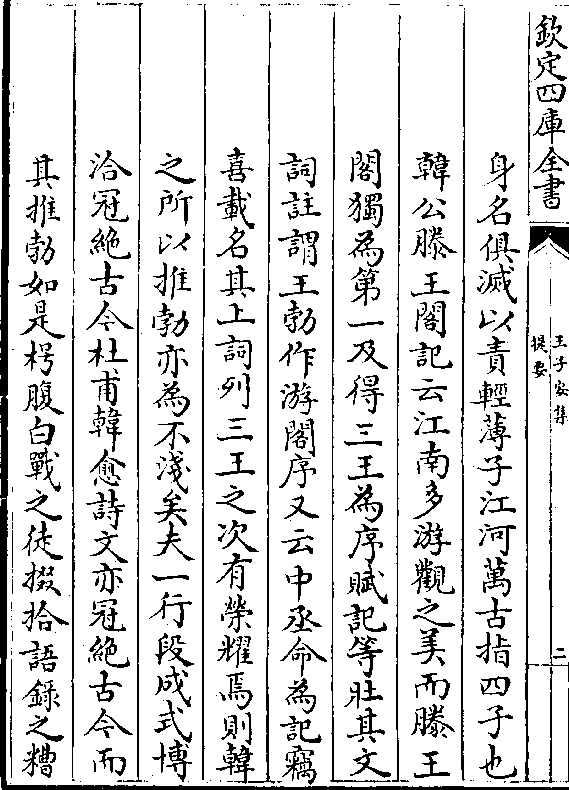 欽定四庫全書
王子安集
提要
二
身名俱滅以責輕薄子江河萬古指四子也
韓公滕王閣記云江南多游觀之美而滕王
閣獨為第一及得三王為序賦記等壯其文
詞註謂王勃作游閣序又云中丞命為記竊
喜載名其上詞列三王之次有榮耀焉則韓
之所以推勃亦為不淺矣夫一行段成式博
洽冠絶古今杜甫韓愈詩文亦冠絶古今而
其推勃如是枵腹白戰之徒掇拾語錄之糟